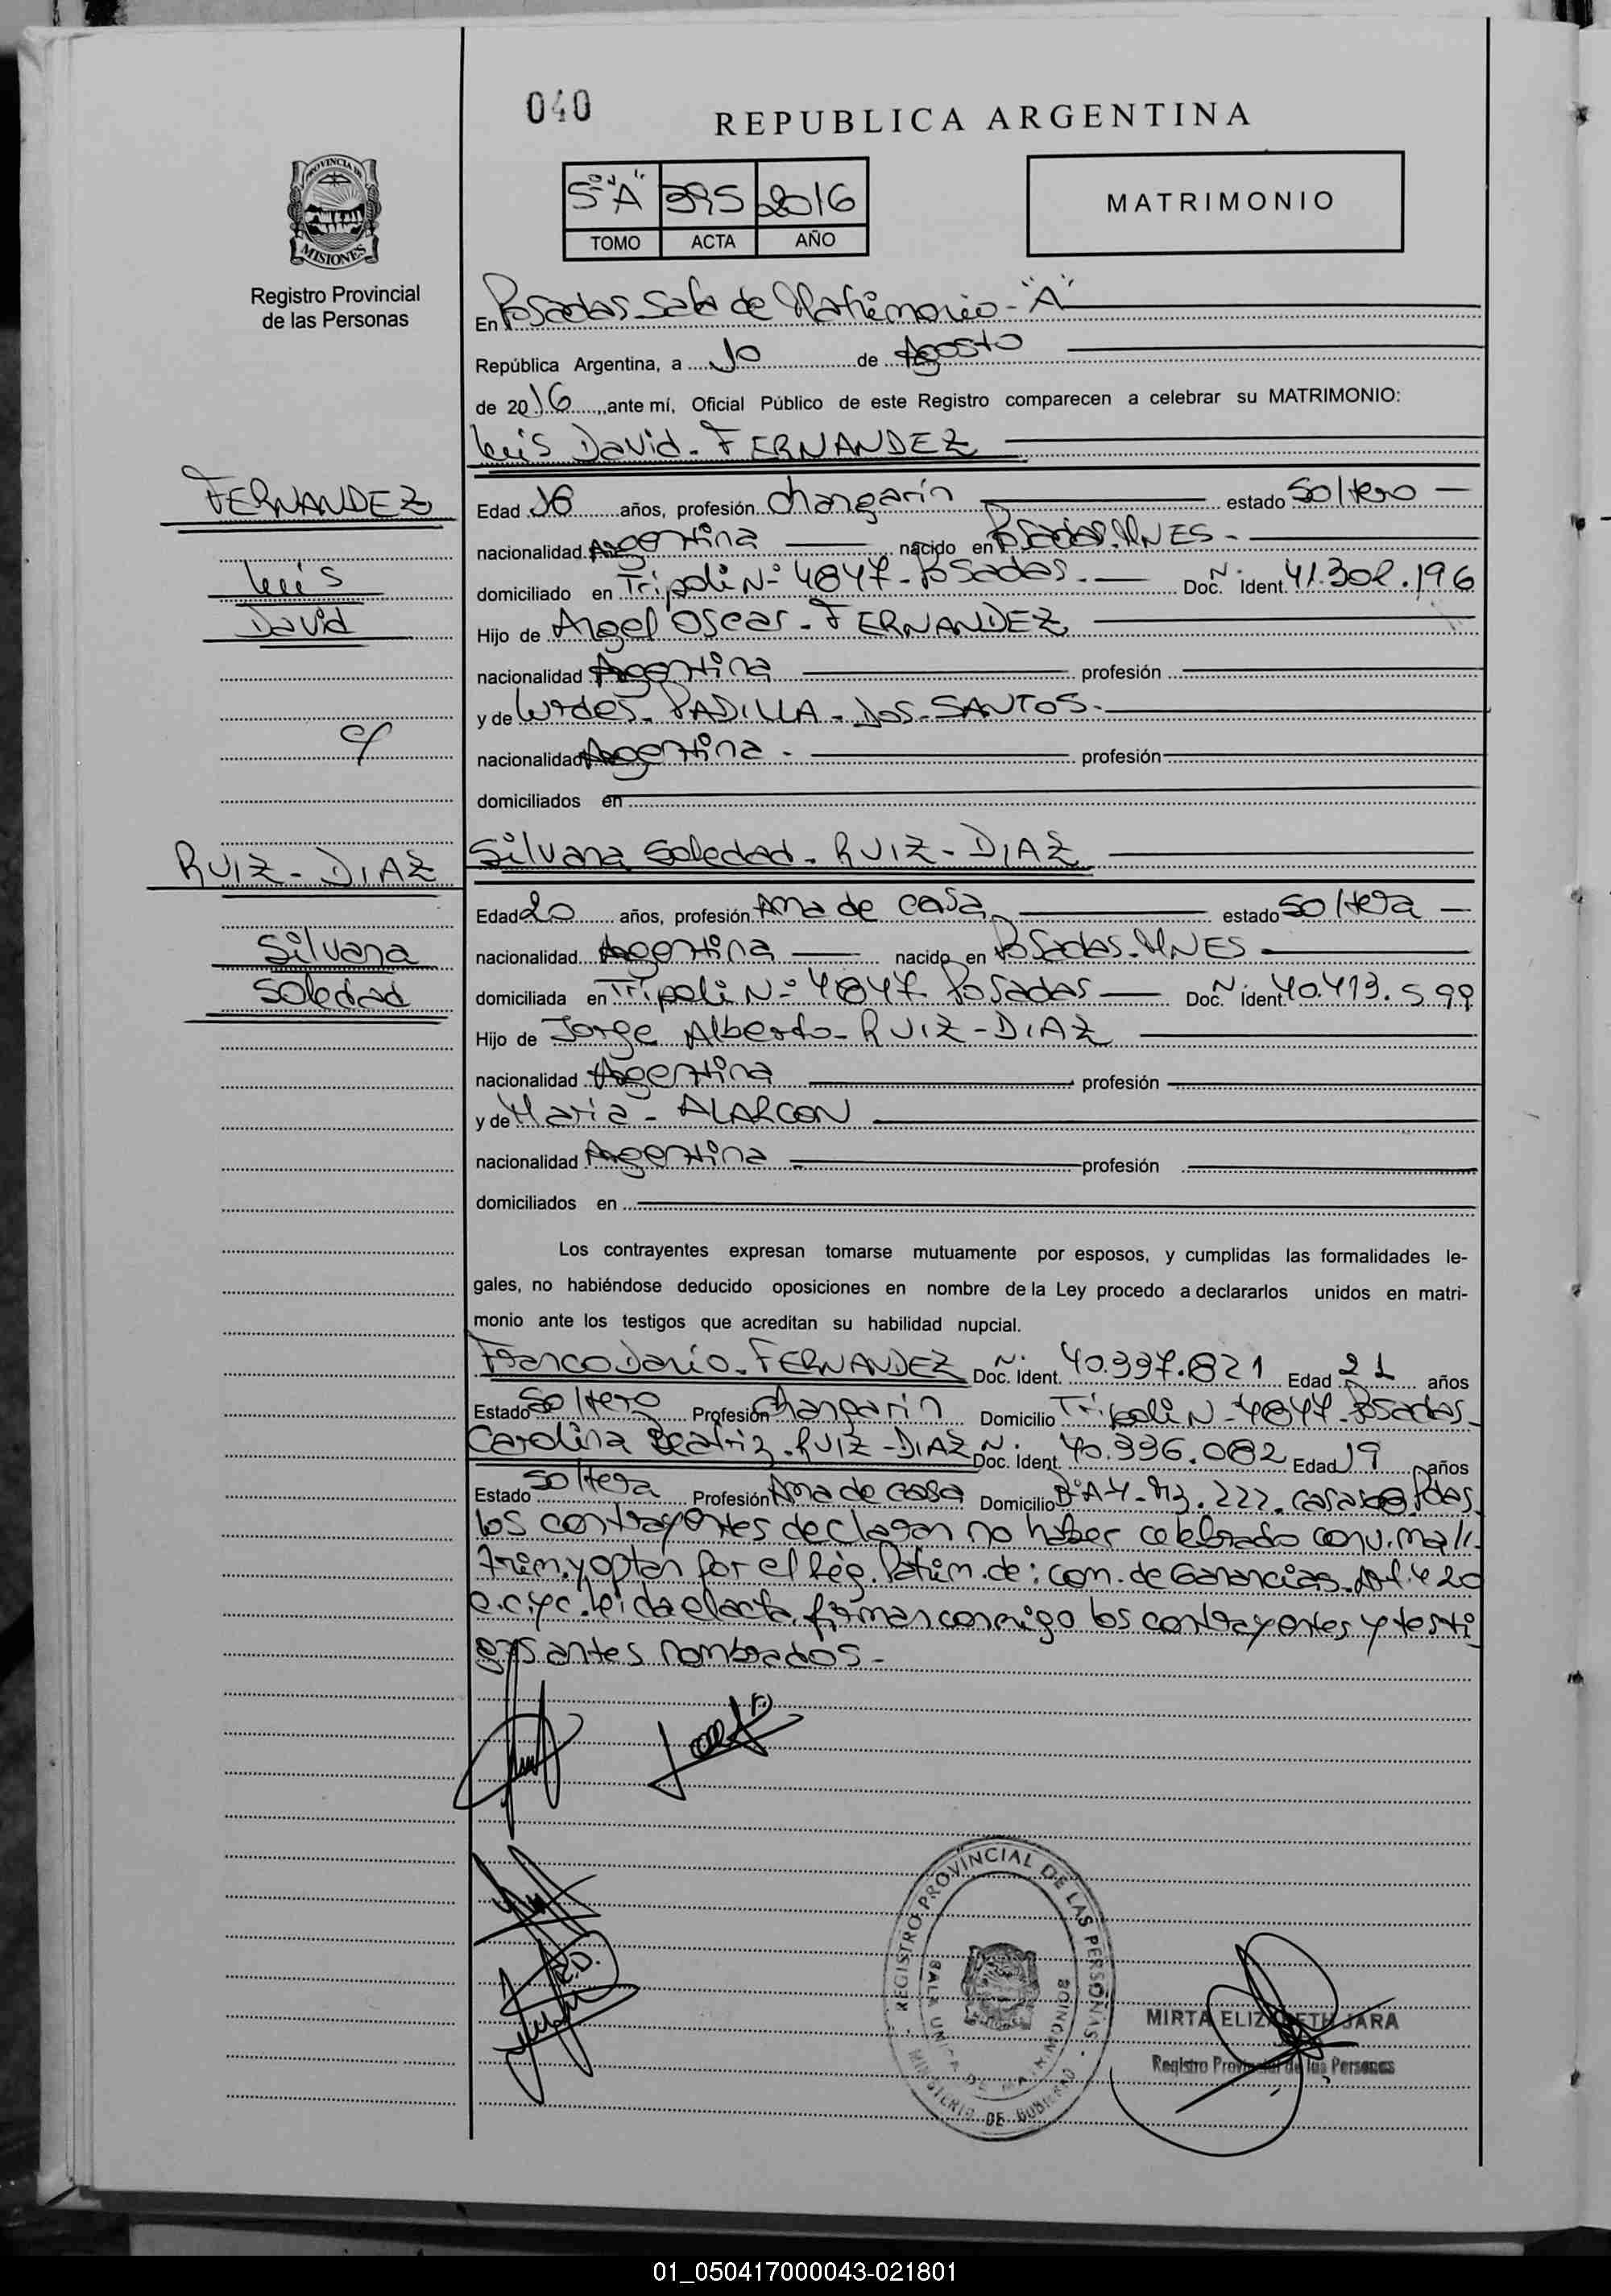 040
REPUBLICA ARGENTINA
PROVINCIA DE
MISIONES
Registro Provincial
de las Personas
5º "A" 395 2016
TOMO ACTA AÑO
MATRIMONIO
En Posadas Sala de Matrimonio - "A"
República Argentina, a 10 de Agosto
de 2016, ante mí, Oficial Público de este Registro comparecen a celebrar su MATRIMONIO:
Luis David - FERNANDEZ
FERNANDEZ
Luis
David
c/
Edad 18 años, profesión Changarín estado Soltero -
nacionalidad Argentina nacido en Posadas. MNES -
domiciliado en Trípoli Nº 4847 - Posadas. - Doc. Ñ. Ident. 41.302.196
Hijo de Angel Oscar - FERNANDEZ
nacionalidad Argentina profesión
y de Lurdes - PADILLA - DOS - SANTOS -
nacionalidad Argentina - profesión
domiciliados en
RUIZ - DIAZ
Silvana
Soledad
Silvana Soledad - RUIZ - DIAZ
Edad 20 años, profesión Ama de casa estado Soltera -
nacionalidad Argentina nacido en Posadas - MNES
domiciliada en Trípoli Nº 4847 Posadas Doc. Ñ. Ident. 40.413.599
Hijo de Jorge Alberto - RUIZ - DIAZ
nacionalidad Argentina profesión
y de Maria - ALARCON
nacionalidad Argentina - profesión
domiciliados en
Los contrayentes expresan tomarse mutuamente por esposos, y cumplidas las formalidades le-
gales, no habiéndose deducido oposiciones en nombre de la Ley procedo a declararlos unidos en matri-
monio ante los testigos que acreditan su habilidad nupcial.
Franco Darío - FERNANDEZ Doc. Ñ. Ident. 40.337.821 Edad 21 años
Estado Soltero Profesión Changarín Domicilio Trípoli N - 4847 - Posadas -
Carolina Beatriz - RUIZ - DIAZ Doc. Ñ. Ident. 40.336.082 Edad 19 años
Estado Soltera Profesión Ama de casa Domicilio Bº A-4 - Mz. 222. casa Pdas.
los contrayentes declaran no haber celebrado conv. ma//-
trim. y optan por el Rég. Patrim. de: com. de Ganancias. Art. 420
e. c.y.c. leida el acta, firman conmigo los contrayentes y testi
gos antes nombrados -
R.D.
REGISTRO PROVINCIAL DE LAS PERSONAS
SALA UNICA DE MATRIMONIOS
MINISTERIO DE GOBIERNO
MIRTA ELIZABETH JARA
Registro Provincial de las Personas
01_050417000043-021801